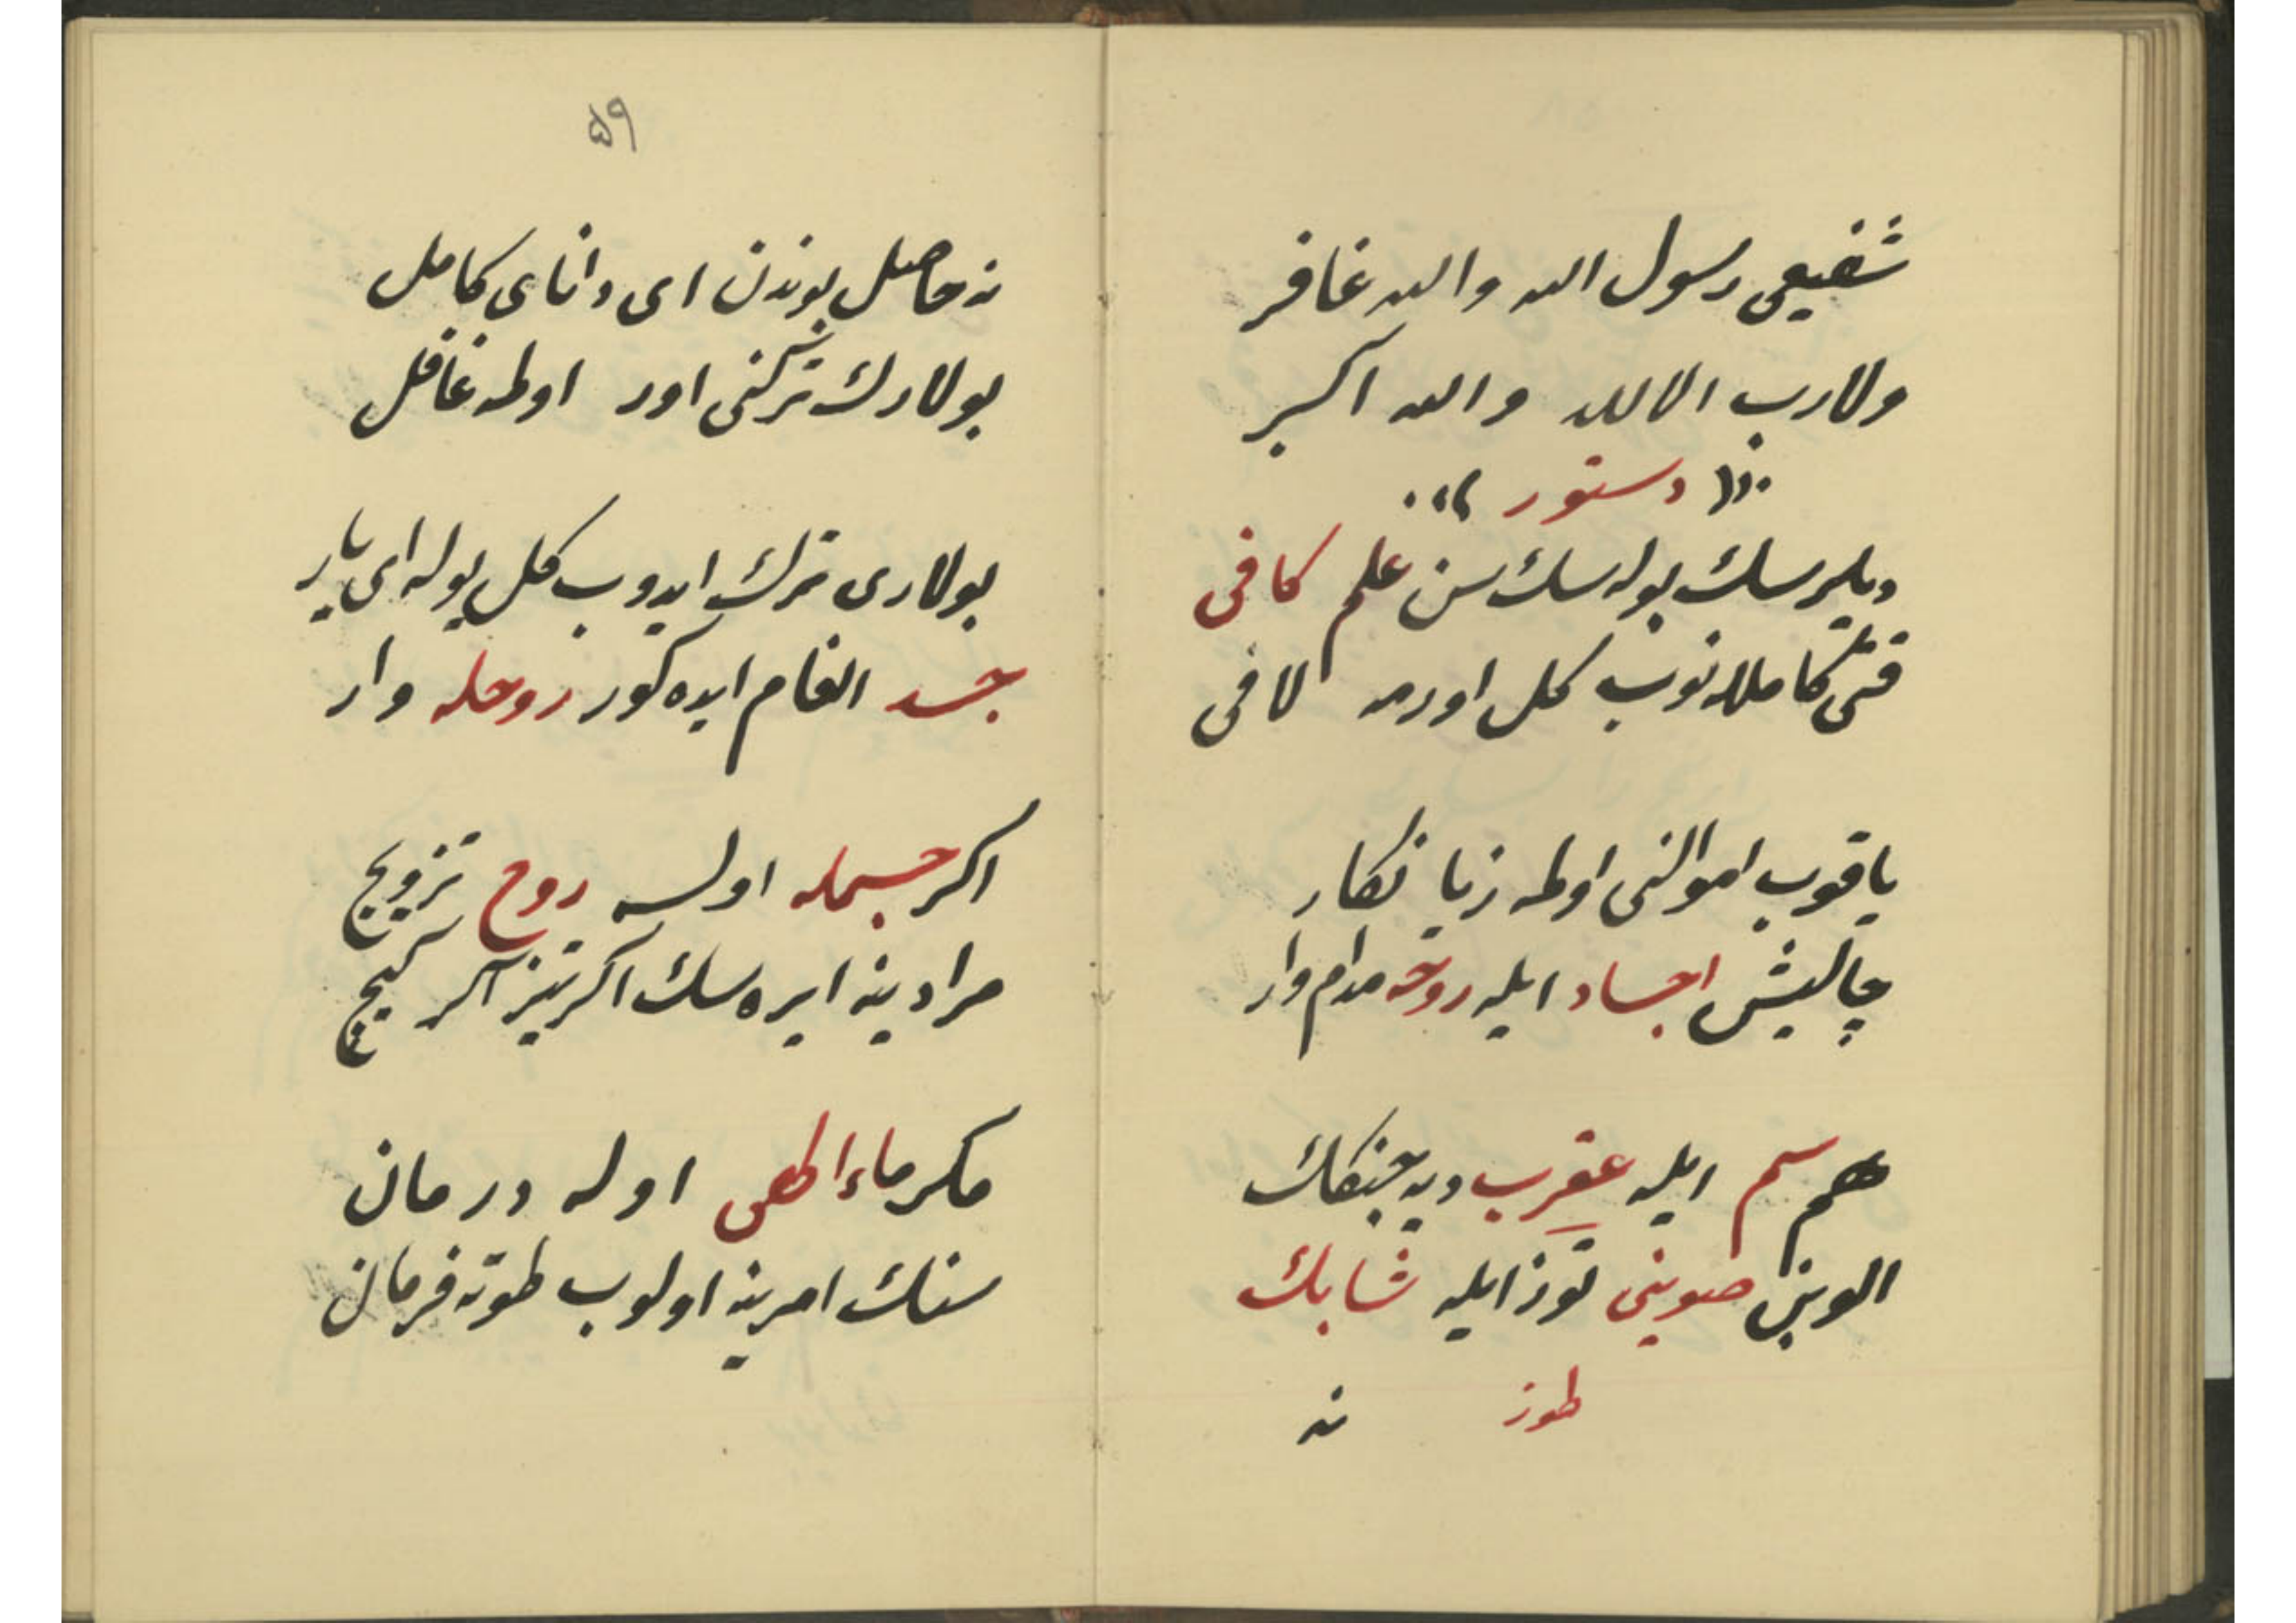 شفیعی رسول الله والله غافر
ولا رب الا الله والله اکبر
دستور
دیلرسك بوله سك سن علم کافی
قتی کاملانوب کل اورمه لافی
یاقوب اموالنی اولمه زیانکار
چالیش اجساد ایله روحه مدام وار
هم سم ایله عقرب دیه جنکك
الوبن صوینی توز ایله شابك
طوز
نه
۵۹
نه حاصل بوندن ای دانای کامل
بولارك ترکنی اور اولمه غافل
بولاری ترك ایدوب کل یوله ای یار
جسد الغام ایده کور روحله وار
اکر جسمله اولسه روح تزویج
مرادینه ایره سك اکر تیز اکر کیج
مکر ماء الهی اوله درمان
سنك امرینه اولوب طوته فرمان